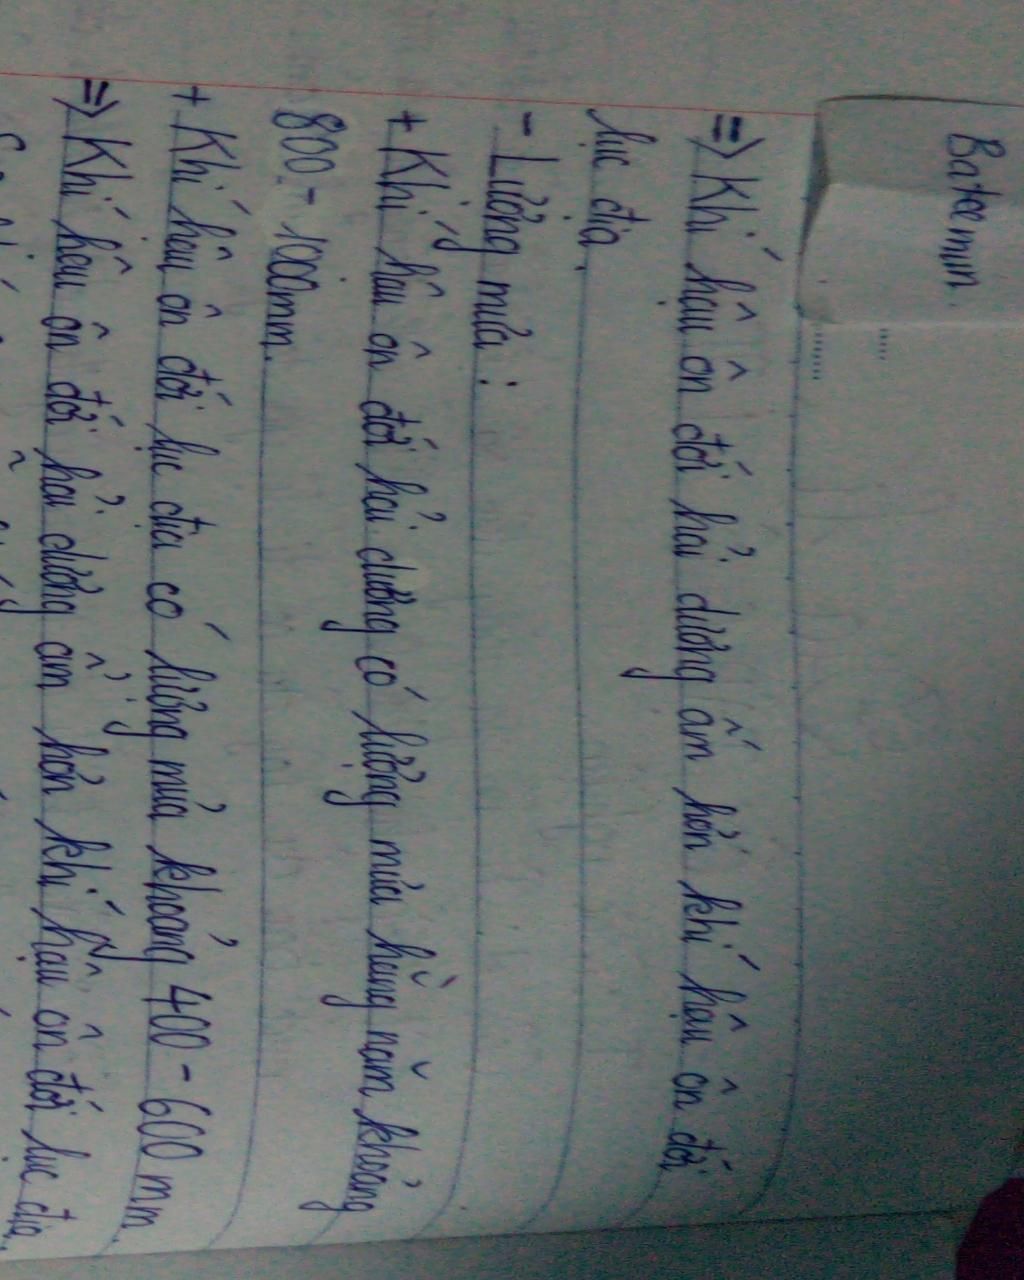 Batee mun.
=> Khí hậu ôn đới hải dương ấm hơn khí hậu ôn đới
lục địa.
- Lượng mưa :
+ Khí hậu ôn đới hải dương có lượng mưa hàng năm khoảng
800 - 1000mm.
+ Khí hậu ôn đới lục địa có lượng mưa khoảng 400 - 600 mm.
=> Khí hậu ôn đới hải dương ẩm hơn khí hậu ôn đới lục địa.